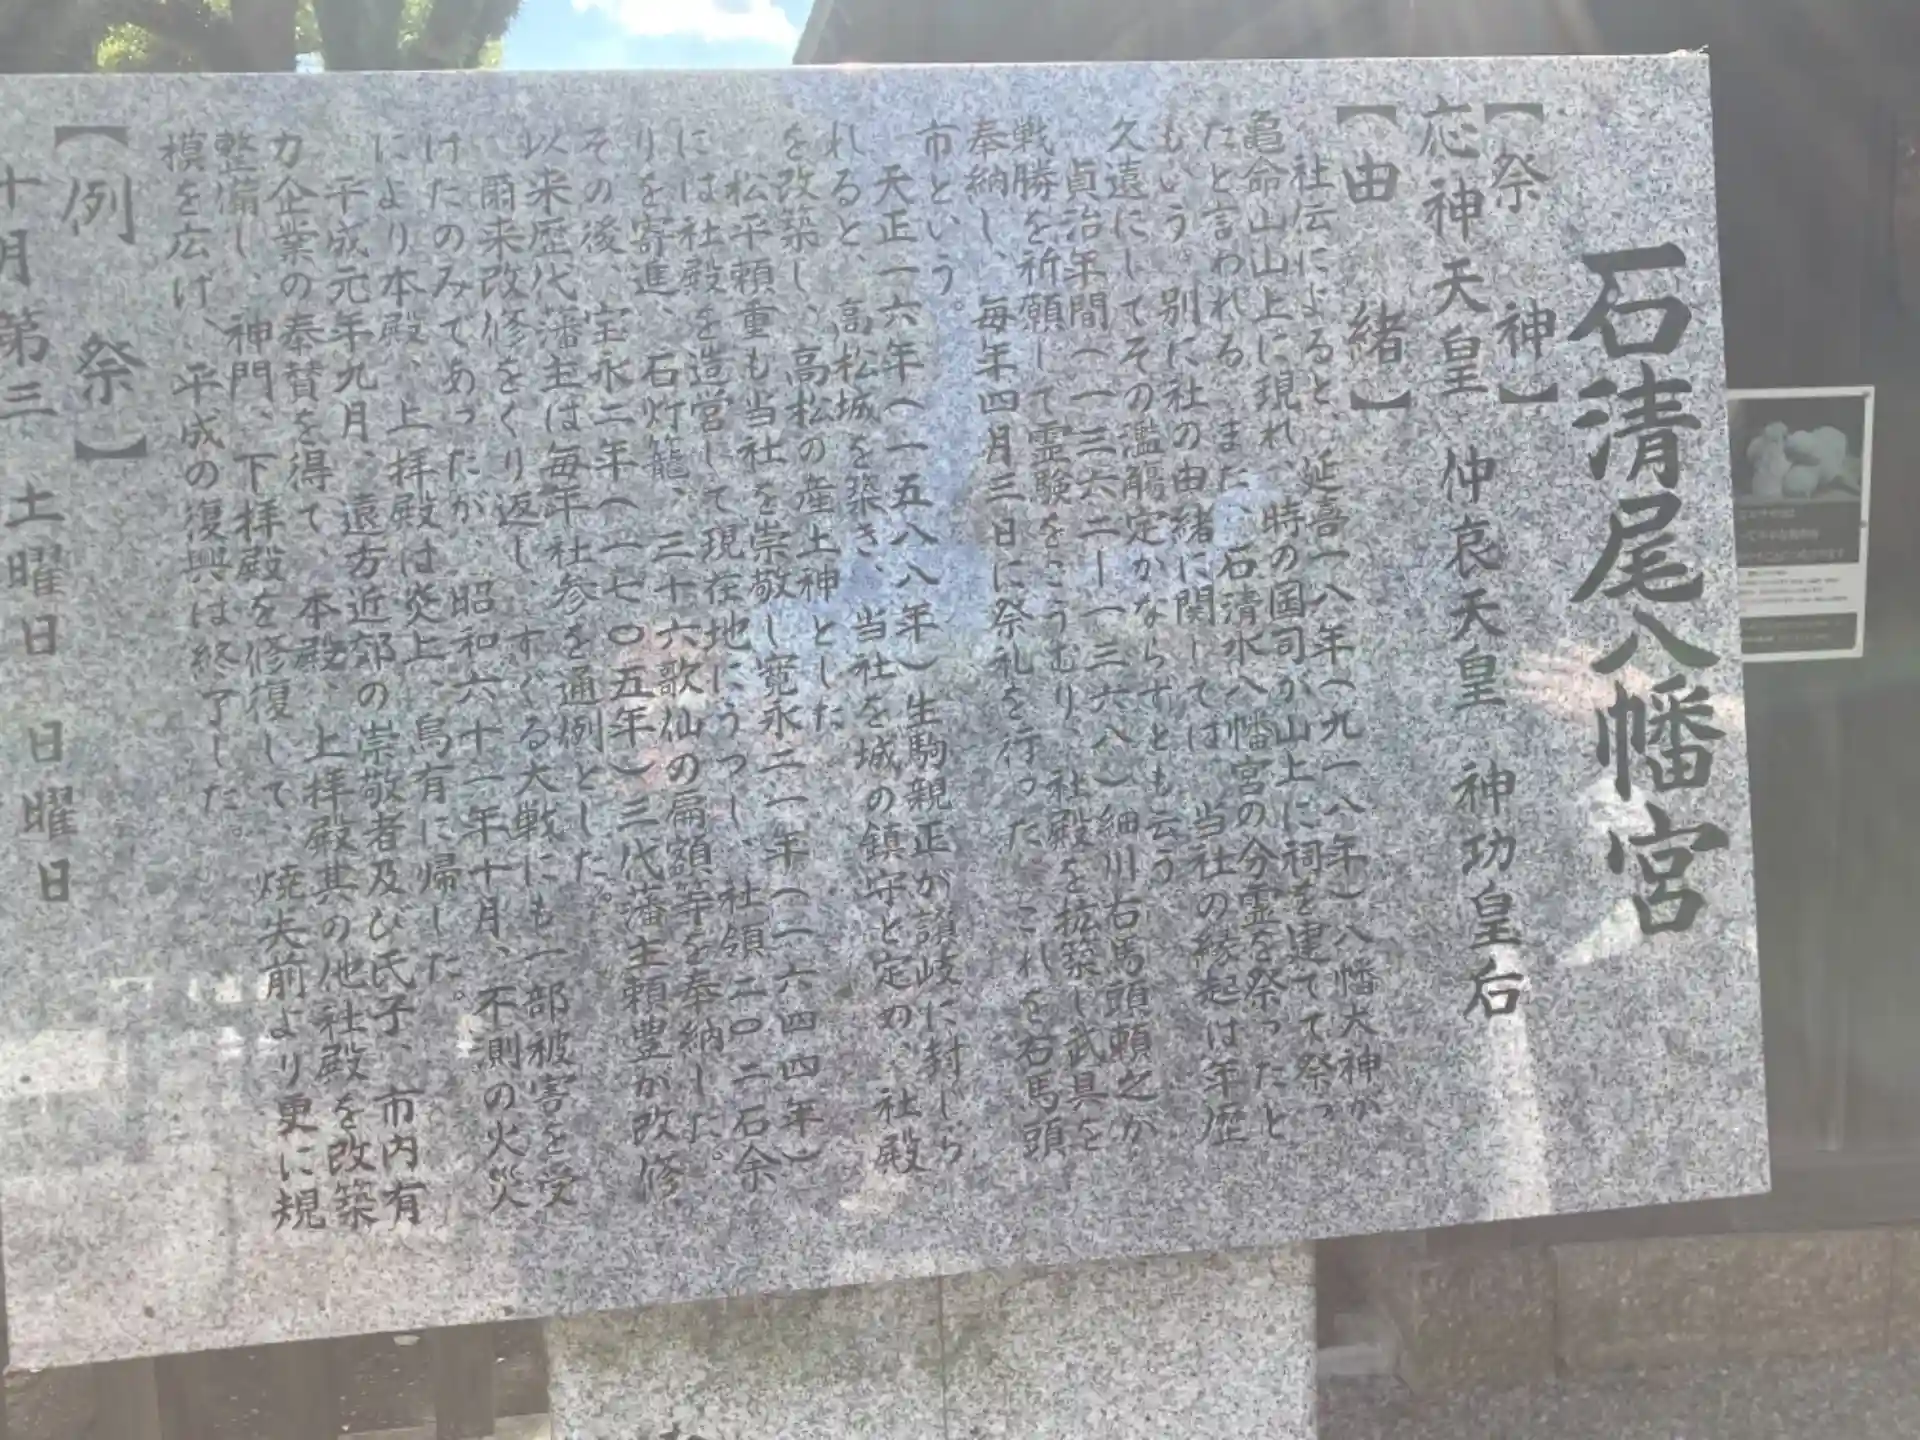 石清尾八幡宮
【祭　神】
応神天皇　仲哀天皇　神功皇后
【由　緒】
社伝によると、延喜一八年(九一八年)八幡大神が
亀命山山上に現れ、時の国司が山上に祠を建てて祭っ
たと言われる。また、石清水八幡宮の分霊を祭ったと
もいう。別に社の由緒に関しては、当社の縁起は年歴
久遠にしてその濫觴定かならずとも云う
貞治年間(一三六二ー一三六八)細川右馬頭頼之が
戦勝を祈願して霊験をこうむり、社殿を拡築し武具を
奉納し、毎年四月三日に祭礼を行った。これを右馬頭
市という。
天正一六年(一五八八年)生駒親正が讃岐に封じら
れると、高松城を築き、当社を城の鎮守と定め、社殿
を改築し、高松の産土神とした
松平頼重も当社を崇敬し寛永二一年(一六四四年)
には社殿を造営して現在地にうつし、社領二〇二石余
りを寄進、石灯籠、三十六歌仙の扁額等を奉納した。
その後、宝永二年(一七〇五年)三代藩主頼豊が改修
以来歴代藩主は毎年社参を通例とした。
爾来改修をくり返し、すぐる大戦にも一部被害を受
けたのみであったが、昭和六十一年十月、不測の火災
により本殿、上拝殿は炎上、烏有に帰した。
平成元年九月、遠方近郊の崇敬者及び氏子、市内有
力企業の奉賛を得て、本殿、上拝殿其の他社殿を改築
整備し、神門、下拝殿を修復して、焼失前より更に規
模を広げ、平成の復興は終了した。
【例　祭】
十月第三　土曜日　日曜日